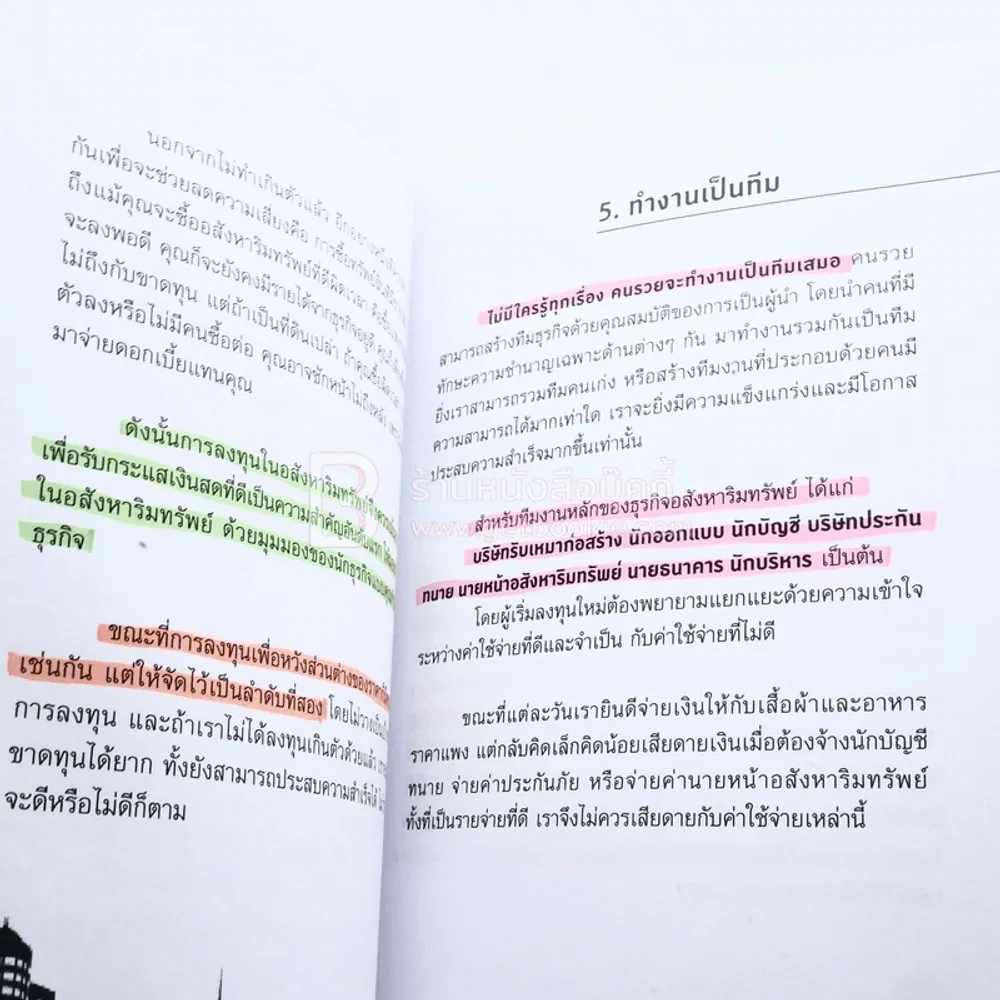 นอกจากไม่ทำเกินตัวแล้ว อีกอย่างหนึ่ง
กันเพื่อจะช่วยลดความเสี่ยงคือ การซื้อทรัพย์สิน
ถึงแม้คุณจะซื้ออสังหาริมทรัพย์ที่ดีผิดเวลา คือซื้อ
จะลงพอดี คุณก็จะยังคงมีรายได้จากธุรกิจอยู่ดี
ไม่ถึงกับขาดทุน แต่ถ้าเป็นที่ดินเปล่า ถ้าคุณซื้อ
ตัวลงหรือไม่มีคนซื้อต่อ คุณอาจชักหน้าไม่ถึงหลัง
มาจ่ายดอกเบี้ยแทนคุณ
ดังนั้นการลงทุนในอสังหาริมทรัพย์จึงควร
เพื่อรับกระแสเงินสดที่ดีเป็นความสำคัญอันดับแรก
ในอสังหาริมทรัพย์ ด้วยมุมมองของนักธุรกิจ
ธุรกิจ
ขณะที่การลงทุนเพื่อหวังส่วนต่างของราคา
เช่นกัน แต่ให้จัดไว้เป็นลำดับที่สอง โดยไม่วาง
การลงทุน และถ้าเราไม่ได้ลงทุนเกินตัวด้วยแล้ว
ขาดทุนได้ยาก ทั้งยังสามารถประสบความสำเร็จได้
จะดีหรือไม่ดีก็ตาม
5. ทำงานเป็นทีม
ไม่มีใครรู้ทุกเรื่อง คนรวยจะทำงานเป็นทีมเสมอ คนรวย
สามารถสร้างทีมธุรกิจด้วยคุณสมบัติของการเป็นผู้นำ โดยนำคนที่มี
ทักษะความชำนาญเฉพาะด้านต่างๆ กัน มาทำงานรวมกันเป็นทีม
ยิ่งเราสามารถรวมทีมคนเก่ง หรือสร้างทีมงานที่ประกอบด้วยคนมี
ความสามารถได้มากเท่าใด เราจะยิ่งมีความแข็งแกร่งและมีโอกาส
ประสบความสำเร็จมากขึ้นเท่านั้น
ร้านหนังสือบุ๊คกี้
สำหรับทีมงานหลักของธุรกิจอสังหาริมทรัพย์ ได้แก่
บริษัทรับเหมาก่อสร้าง นักออกแบบ นักบัญชี บริษัทประกัน
ทนาย นายหน้าอสังหาริมทรัพย์ นายธนาคาร นักบริหาร เป็นต้น
โดยผู้เริ่มลงทุนใหม่ต้องพยายามแยกแยะด้วยความเข้าใจ
ระหว่างค่าใช้จ่ายที่ดีและจำเป็น กับค่าใช้จ่ายที่ไม่ดี
ขณะที่แต่ละวันเรายินดีจ่ายเงินให้กับเสื้อผ้าและอาหาร
ราคาแพง แต่กลับคิดเล็กคิดน้อยเสียดายเงินเมื่อต้องจ้างนักบัญชี
ทนาย จ่ายค่าประกันภัย หรือจ่ายค่านายหน้าอสังหาริมทรัพย์
ทั้งที่เป็นรายจ่ายที่ดี เราจึงไม่ควรเสียดายกับค่าใช้จ่ายเหล่านี้